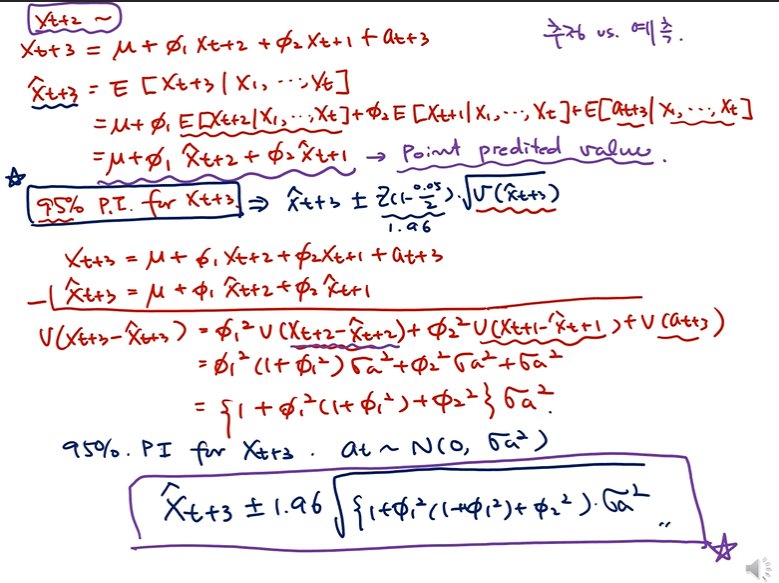 Xt+2 ~
추정 vs. 예측.
Xt+3 = μ + φ₁ Xt+2 + φ₂ Xt+1 + at+3
X̂t+3 = E [Xt+3 | X₁, ⋯, Yt]
= μ + φ₁ E[Xt+2|X₁, ⋯, Xt] + φ₂ E [Xt+1 | X₁, ⋯, Xt] + E[at+3 | X₁, ⋯, Xt]
= μ + φ₁ X̂t+2 + φ₂ X̂t+1 → Point predited value.
☆ 95% P.I. for Xt+3 ⇒ X̂t+3 ± Z(1-0.05/2)·√V(X̂t+3)
1.96
Xt+3 = μ + φ₁ Xt+2 + φ₂ Xt+1 + at+3
−) X̂t+3 = μ + φ₁ X̂t+2 + φ₂ X̂t+1
V(Xt+3 − X̂t+3) = φ₁² V(Xt+2 − X̂t+2) + φ₂² V(Xt+1 − X̂t+1) + V(at+3)
= φ₁² (1+φ₁²) σa² + φ₂² σa² + σa²
= {1 + φ₁² (1+φ₁²) + φ₂²} σa².
95% PI for Xt+3. at ~ N(0, σa²)
X̂t+3 ± 1.96 √{1+φ₁²(1+φ₁²)+φ₂²)·σa² ,, ☆